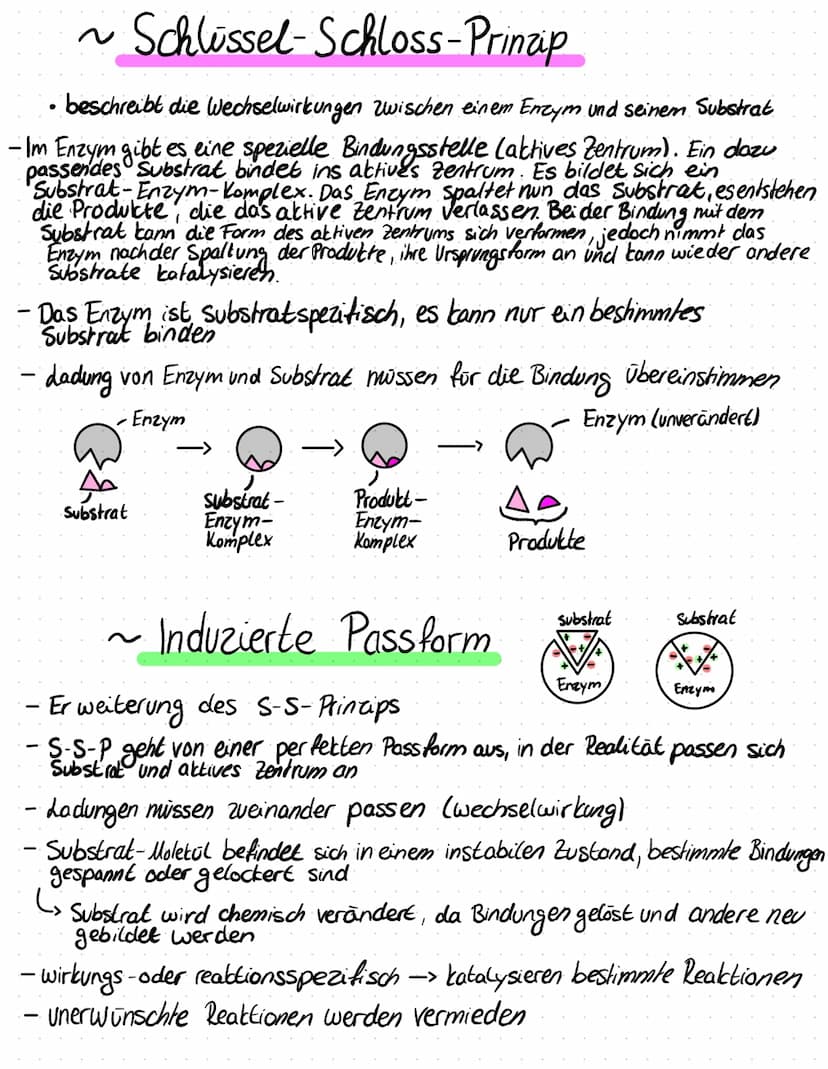 ~ Schlüssel-Schloss-Prinzip
• beschreibt die Wechselwirkungen zwischen einem Enzym und seinem Substrat
- Im Enzym gibt es eine spezielle Bindungsstelle (aktives Zentrum). Ein dazu
passendes Substrat bindet ins aktives Zentrum. Es bildet sich ein
Substrat-Enzym-Komplex. Das Enzym spaltet nun das Substrat, es entstehen
die Produkte, die das aktive Zentrum verlassen. Bei der Bindung mit dem
Substrat kann die Form des aktiven Zentrums sich verformen, jedoch nimmt das
Enzym nach der Spaltung der Produkte, ihre Ursprungsform an und kann wieder andere
Substrate katalysieren.
- Das Enzym ist substratspezifisch, es kann nur ein bestimmtes
Substrat binden
- Ladung von Enzym und Substrat müssen für die Bindung übereinstimmen
Enzym
Enzym (unverändert)
Substrat
Substrat-
Enzym-
Komplex
Produkt-
Enzym-
Komplex
Produkte
~ Induzierte Passform
Substrat
Enzym
Substrat
Enzym
- Erweiterung des S-S-Prinzips
- S-S-P geht von einer perfekten Passform aus, in der Realität passen sich
Substrat und aktives Zentrum an
- Ladungen müssen zueinander passen (wechselwirkung)
- Substrat-Molekül befindet sich in einem instabilen Zustand, bestimmte Bindungen
gespannt oder gelockert sind
↳ Substrat wird chemisch verändert, da Bindungen gelöst und andere neu
gebildet werden
- wirkungs- oder reaktionsspezifisch → katalysieren bestimmte Reaktionen
- unerwünschte Reaktionen werden vermieden